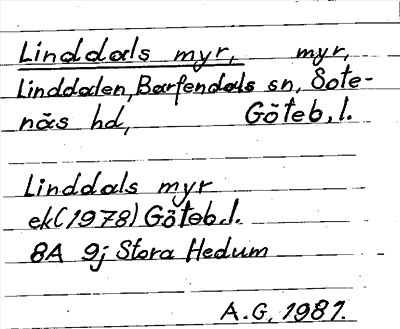 Linddals myr, myr,
Linddalen, Bärfendals sn, Sote-
näs hd, Göteb. l.
Linddals myr
ek (1978) Göteb. l.
8A 9j Stora Hedum
A.G. 1981.